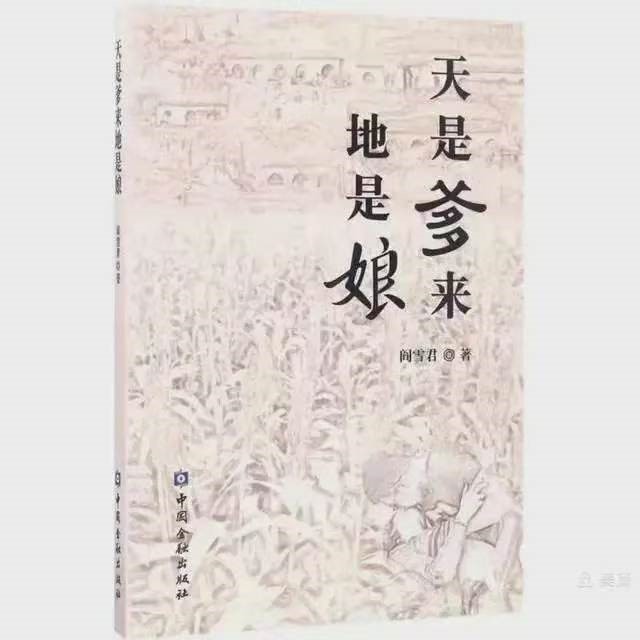 天是爹来
地是娘
阎雪君◎著
中国金融出版社
天是爹来地是娘
阎雪君◎著
中国金融出版社